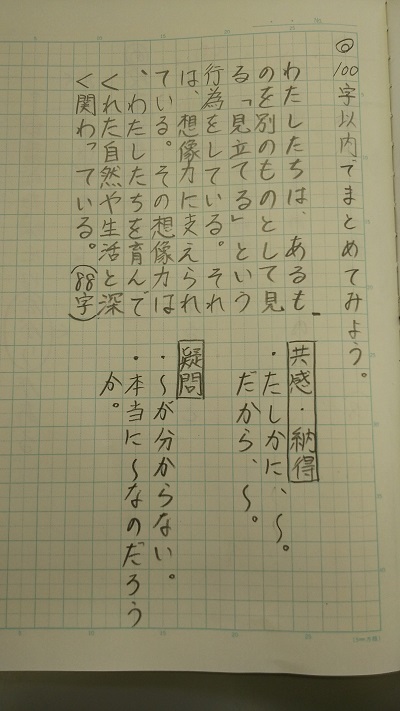 ◎100字以内でまとめてみよう。
わたしたちは、あるも
のを別のものとして見
る「見立てる」という
行為をしている。それ
は、想像力に支えられ
ている。その想像力は
、わたしたちを育んで
くれた自然や生活と深
く関わっている。(88字)
共感・納得
・たしかに、〜。
だから、〜。
疑問
・〜が分からない。
・本当に〜なのだろう
か。